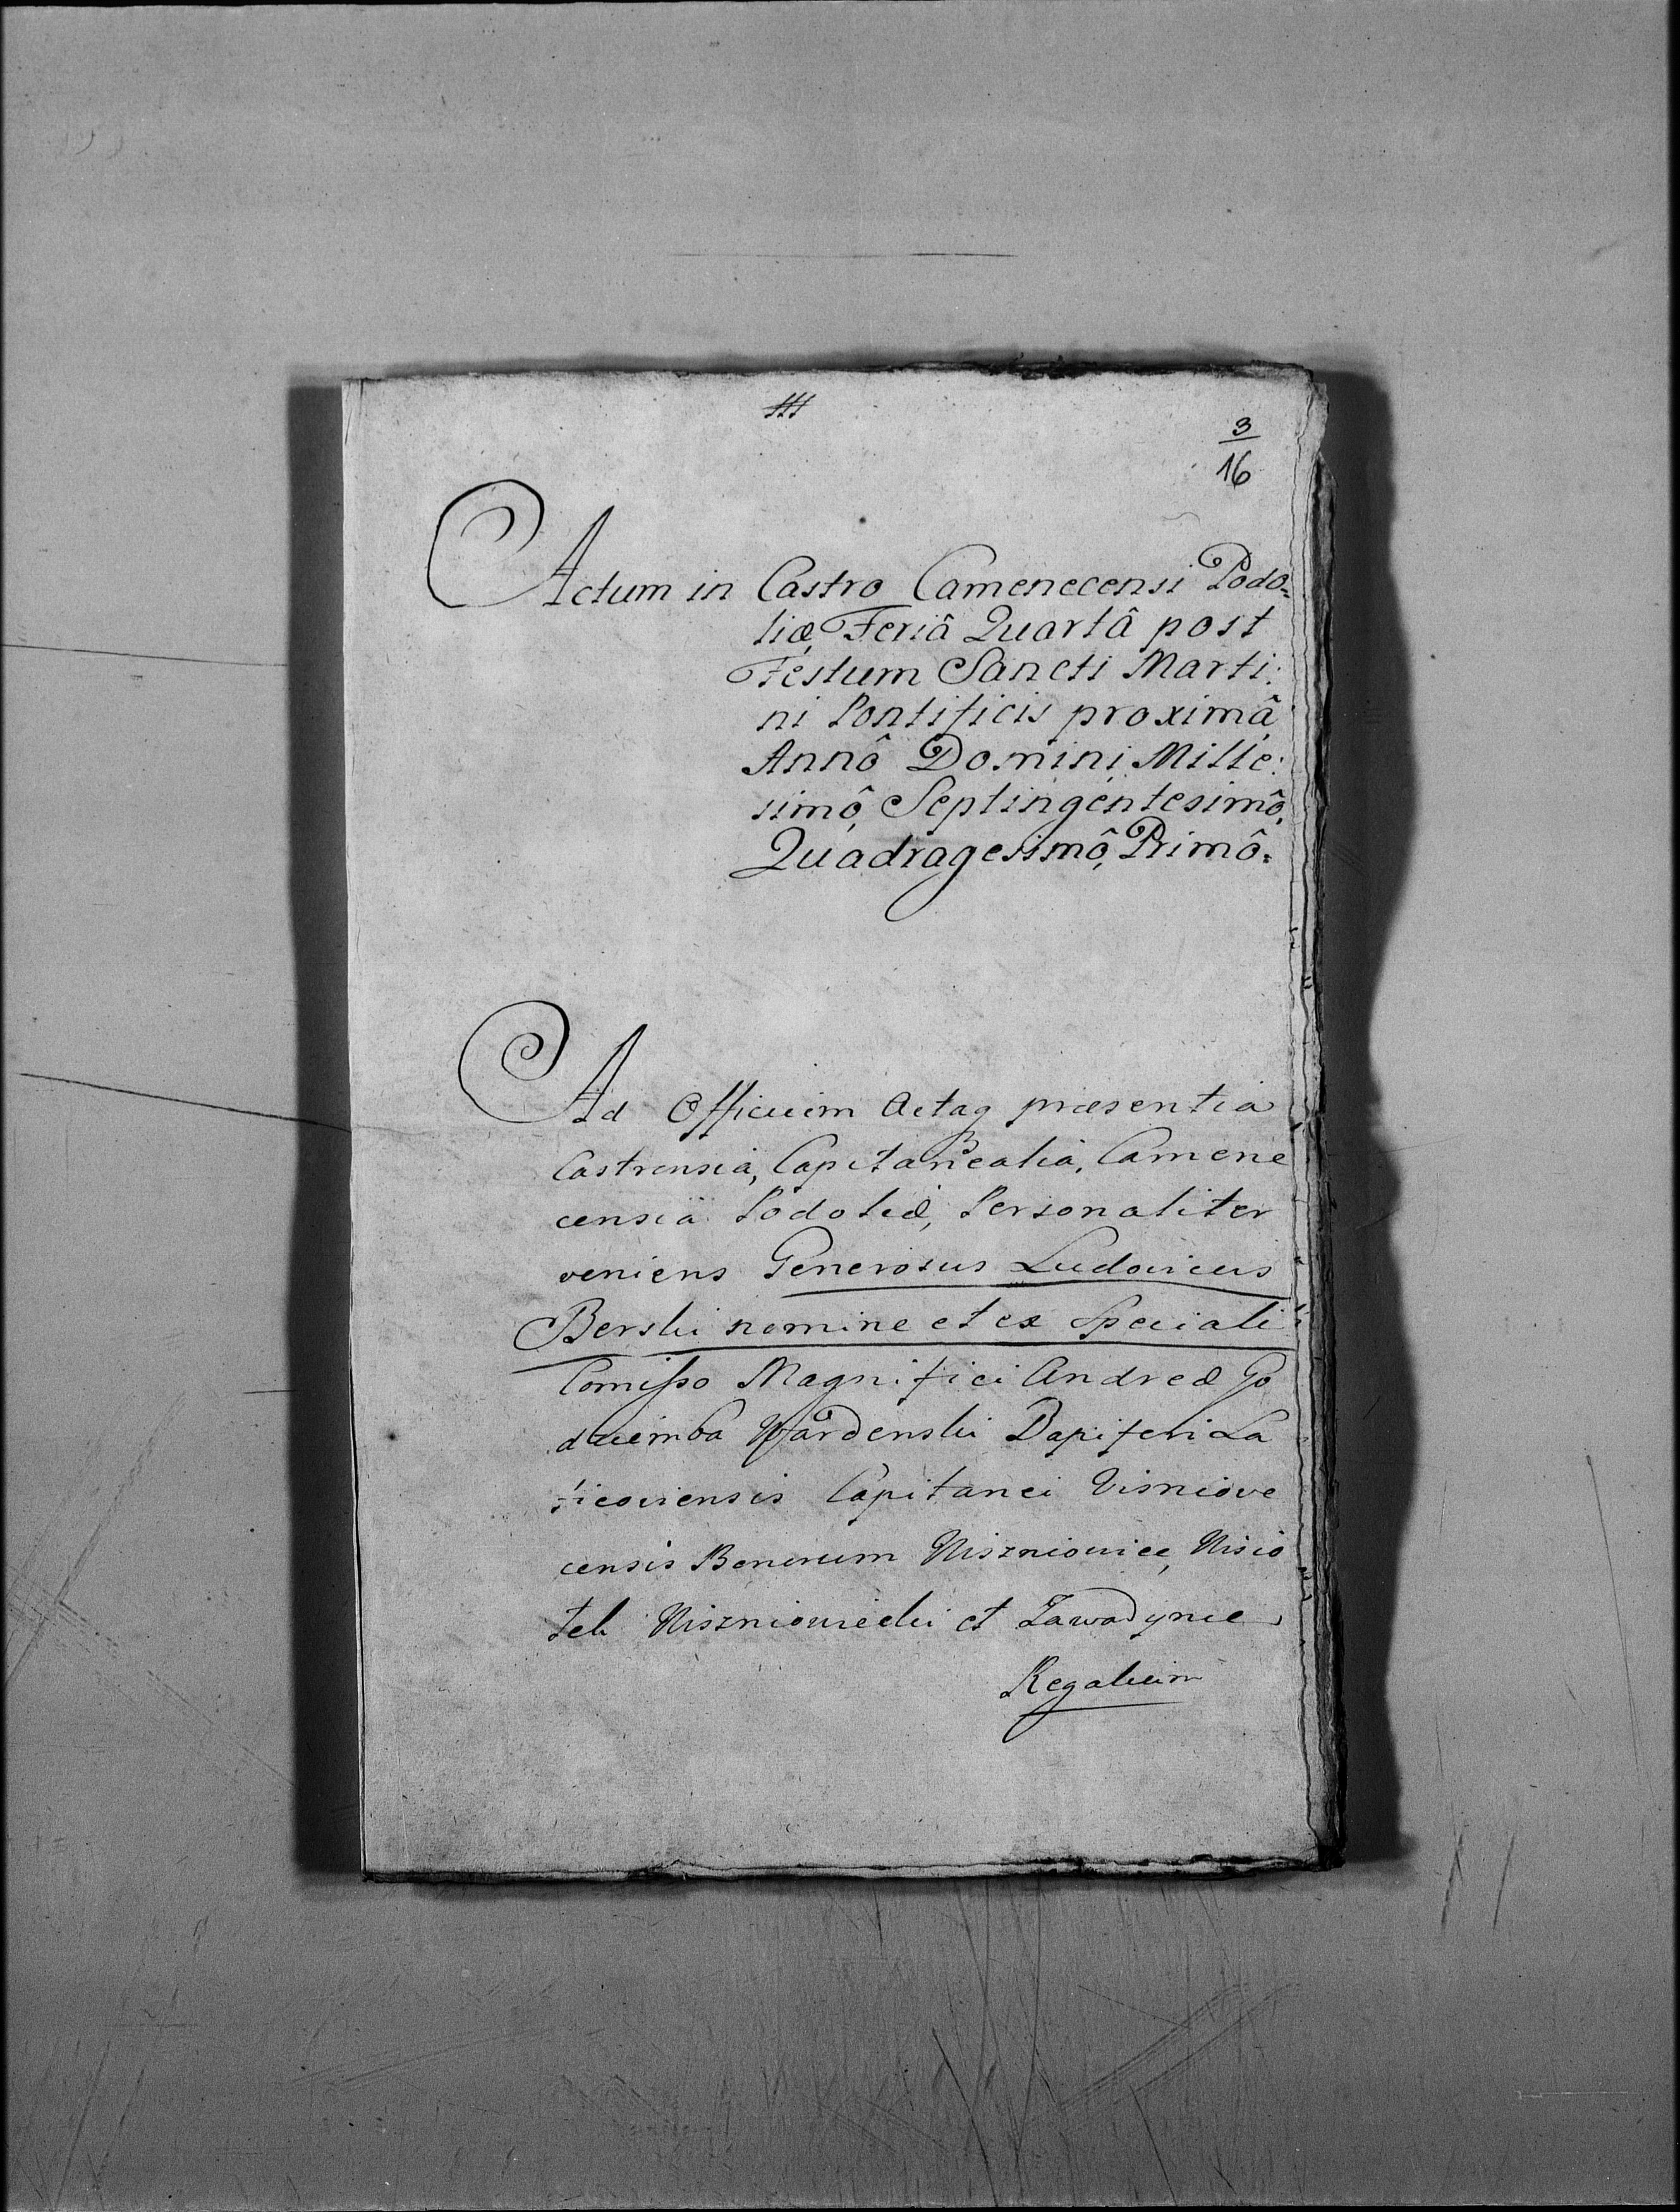 3
16
Actum in Castro Camenecensi Podo=
liæ, Feriâ Quartâ post
Festum Sancti Marti:
ni Pontificis proximâ
Annô Domini Mille:
simô, Septingentesimô,
Quadragesimô, Primô.
Ad Officium Actaq præsentia
Castrensia, Capitanealia, Camene
censia Podoliæ, Personaliter
veniens Generosus Ludovicus
Berski nomine et ex Speciali
Comisso Magnifici Andreæ Go
dziemba Wardenski Dapiferi La
ticoviensis Capitanei Visniove
censis Bonorum Wiszniowice,
Wiszniowiecki et Zawadynie
Regalium